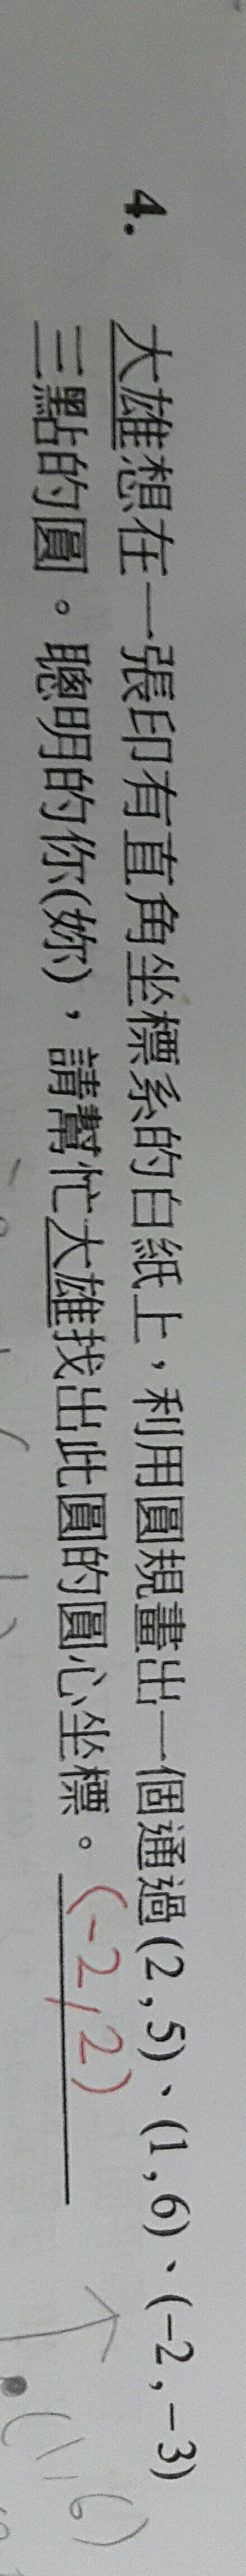 4. 大雄想在一張印有直角坐標系的白紙上，利用圓規畫出一個通過(2 , 5)、(1 , 6)、(−2 , −3)
三點的圓。聰明的你(妳)，請幫忙大雄找出此圓的圓心坐標。(-2,2)
(1,6)